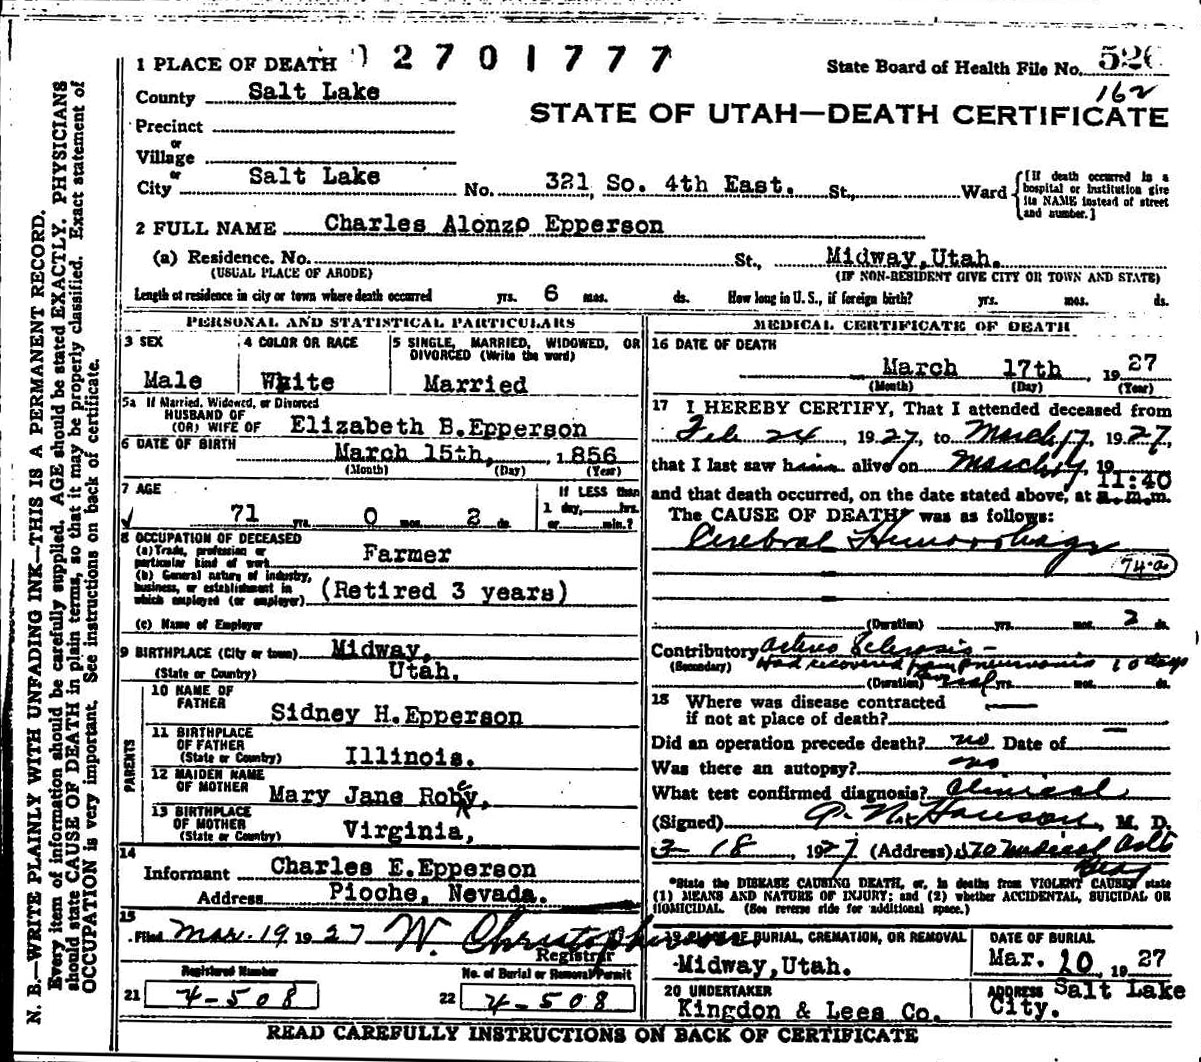 1 PLACE OF DEATH 2701777
State Board of Health File No. 526
162
County Salt Lake
STATE OF UTAH—DEATH CERTIFICATE
Precinct
or
Village
or
City Salt Lake No. 321 So. 4th East. St., Ward
[If death occurred in a hospital or institution give its NAME instead of street and number.]
2 FULL NAME Charles Alonzo Epperson
(a) Residence. No. St., Midway, Utah.
(USUAL PLACE OF ABODE) (IF NON-RESIDENT GIVE CITY OR TOWN AND STATE)
Length of residence in city or town where death occurred yrs. 6 mos. ds. How long in U. S., if foreign birth? yrs. mos. ds.
PERSONAL AND STATISTICAL PARTICULARS
3 SEX 4 COLOR OR RACE 5 SINGLE, MARRIED, WIDOWED, OR
DIVORCED (Write the word)
Male White Married
5a If Married, Widowed, or Divorced
HUSBAND OF
(OR) WIFE OF Elizabeth B. Epperson
6 DATE OF BIRTH March 15th, 1856
(Month) (Day) (Year)
7 AGE If LESS than
1 day, hrs.
71 yrs. 0 mos. 2 ds. or min.?
8 OCCUPATION OF DECEASED
(a) Trade, profession or
particular kind of work Farmer
(b) General nature of industry,
business, or establishment in
which employed (or employer) (Retired 3 years)
(c) Name of Employer
9 BIRTHPLACE (City or town) Midway,
(State or Country) Utah.
PARENTS
10 NAME OF
FATHER Sidney H. Epperson
11 BIRTHPLACE
OF FATHER
(State or Country) Illinois.
12 MAIDEN NAME
OF MOTHER Mary Jane Roby,
13 BIRTHPLACE
OF MOTHER
(State or Country) Virginia,
14
Informant Charles E. Epperson
Address Pioche, Nevada.
15
Filed Mar. 19 1927 W. Christopherson
Registrar
Registered Number No. of Burial or Removal Permit
21 4-508 22 4-508
MEDICAL CERTIFICATE OF DEATH
16 DATE OF DEATH
March 17th, 1927
(Month) (Day) (Year)
17 I HEREBY CERTIFY, That I attended deceased from
Feb 24, 1927, to March 17, 1927,
that I last saw him alive on March 17, 19
11:40
and that death occurred, on the date stated above, at a.m.m.
The CAUSE OF DEATH* was as follows:
Cerebral Hemorrhage
74-a
(Duration) yrs. mos. 2 ds.
Contributory Arterio Sclerosis -
(Secondary) Had recovered from pneumonia 10 days
(Duration) yrs. mos. ds.
18 Where was disease contracted
if not at place of death?
Did an operation precede death? no Date of
Was there an autopsy? no
What test confirmed diagnosis? Clinical
(Signed) Hanson, M. D.
3-18, 1927 (Address) Medical Arts
Bldg
*State the DISEASE CAUSING DEATH, or, in deaths from VIOLENT CAUSES state
(1) MEANS AND NATURE OF INJURY; and (2) whether ACCIDENTAL, SUICIDAL OR
HOMICIDAL. (See reverse side for additional space.)
19 PLACE OF BURIAL, CREMATION, OR REMOVAL DATE OF BURIAL
Midway, Utah. Mar. 20, 1927
20 UNDERTAKER ADDRESS Salt Lake
Kingdon & Lees Co. City.
READ CAREFULLY INSTRUCTIONS ON BACK OF CERTIFICATE
N. B.—WRITE PLAINLY WITH UNFADING INK—THIS IS A PERMANENT RECORD.
Every item of information should be carefully supplied. AGE should be stated EXACTLY. PHYSICIANS
should state CAUSE OF DEATH in plain terms, so that it may be properly classified. Exact statement of
OCCUPATION is very important. See instructions on back of certificate.